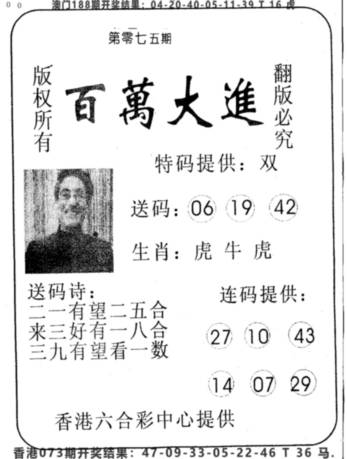 澳门188期开奖结果：04-20-40-05-11-39 T 16 虎
第零七五期
版权所有
百萬大進
翻版必究
特码提供：双
送码：06 19 42
生肖：虎 牛 虎
送码诗：
二一有望二五合
来三好有一八合
三九有望看一数
连码提供：
27 10 43
14 07 29
香港六合彩中心提供
香港073期开奖结果：47-09-33-05-22-46 T 36 马.